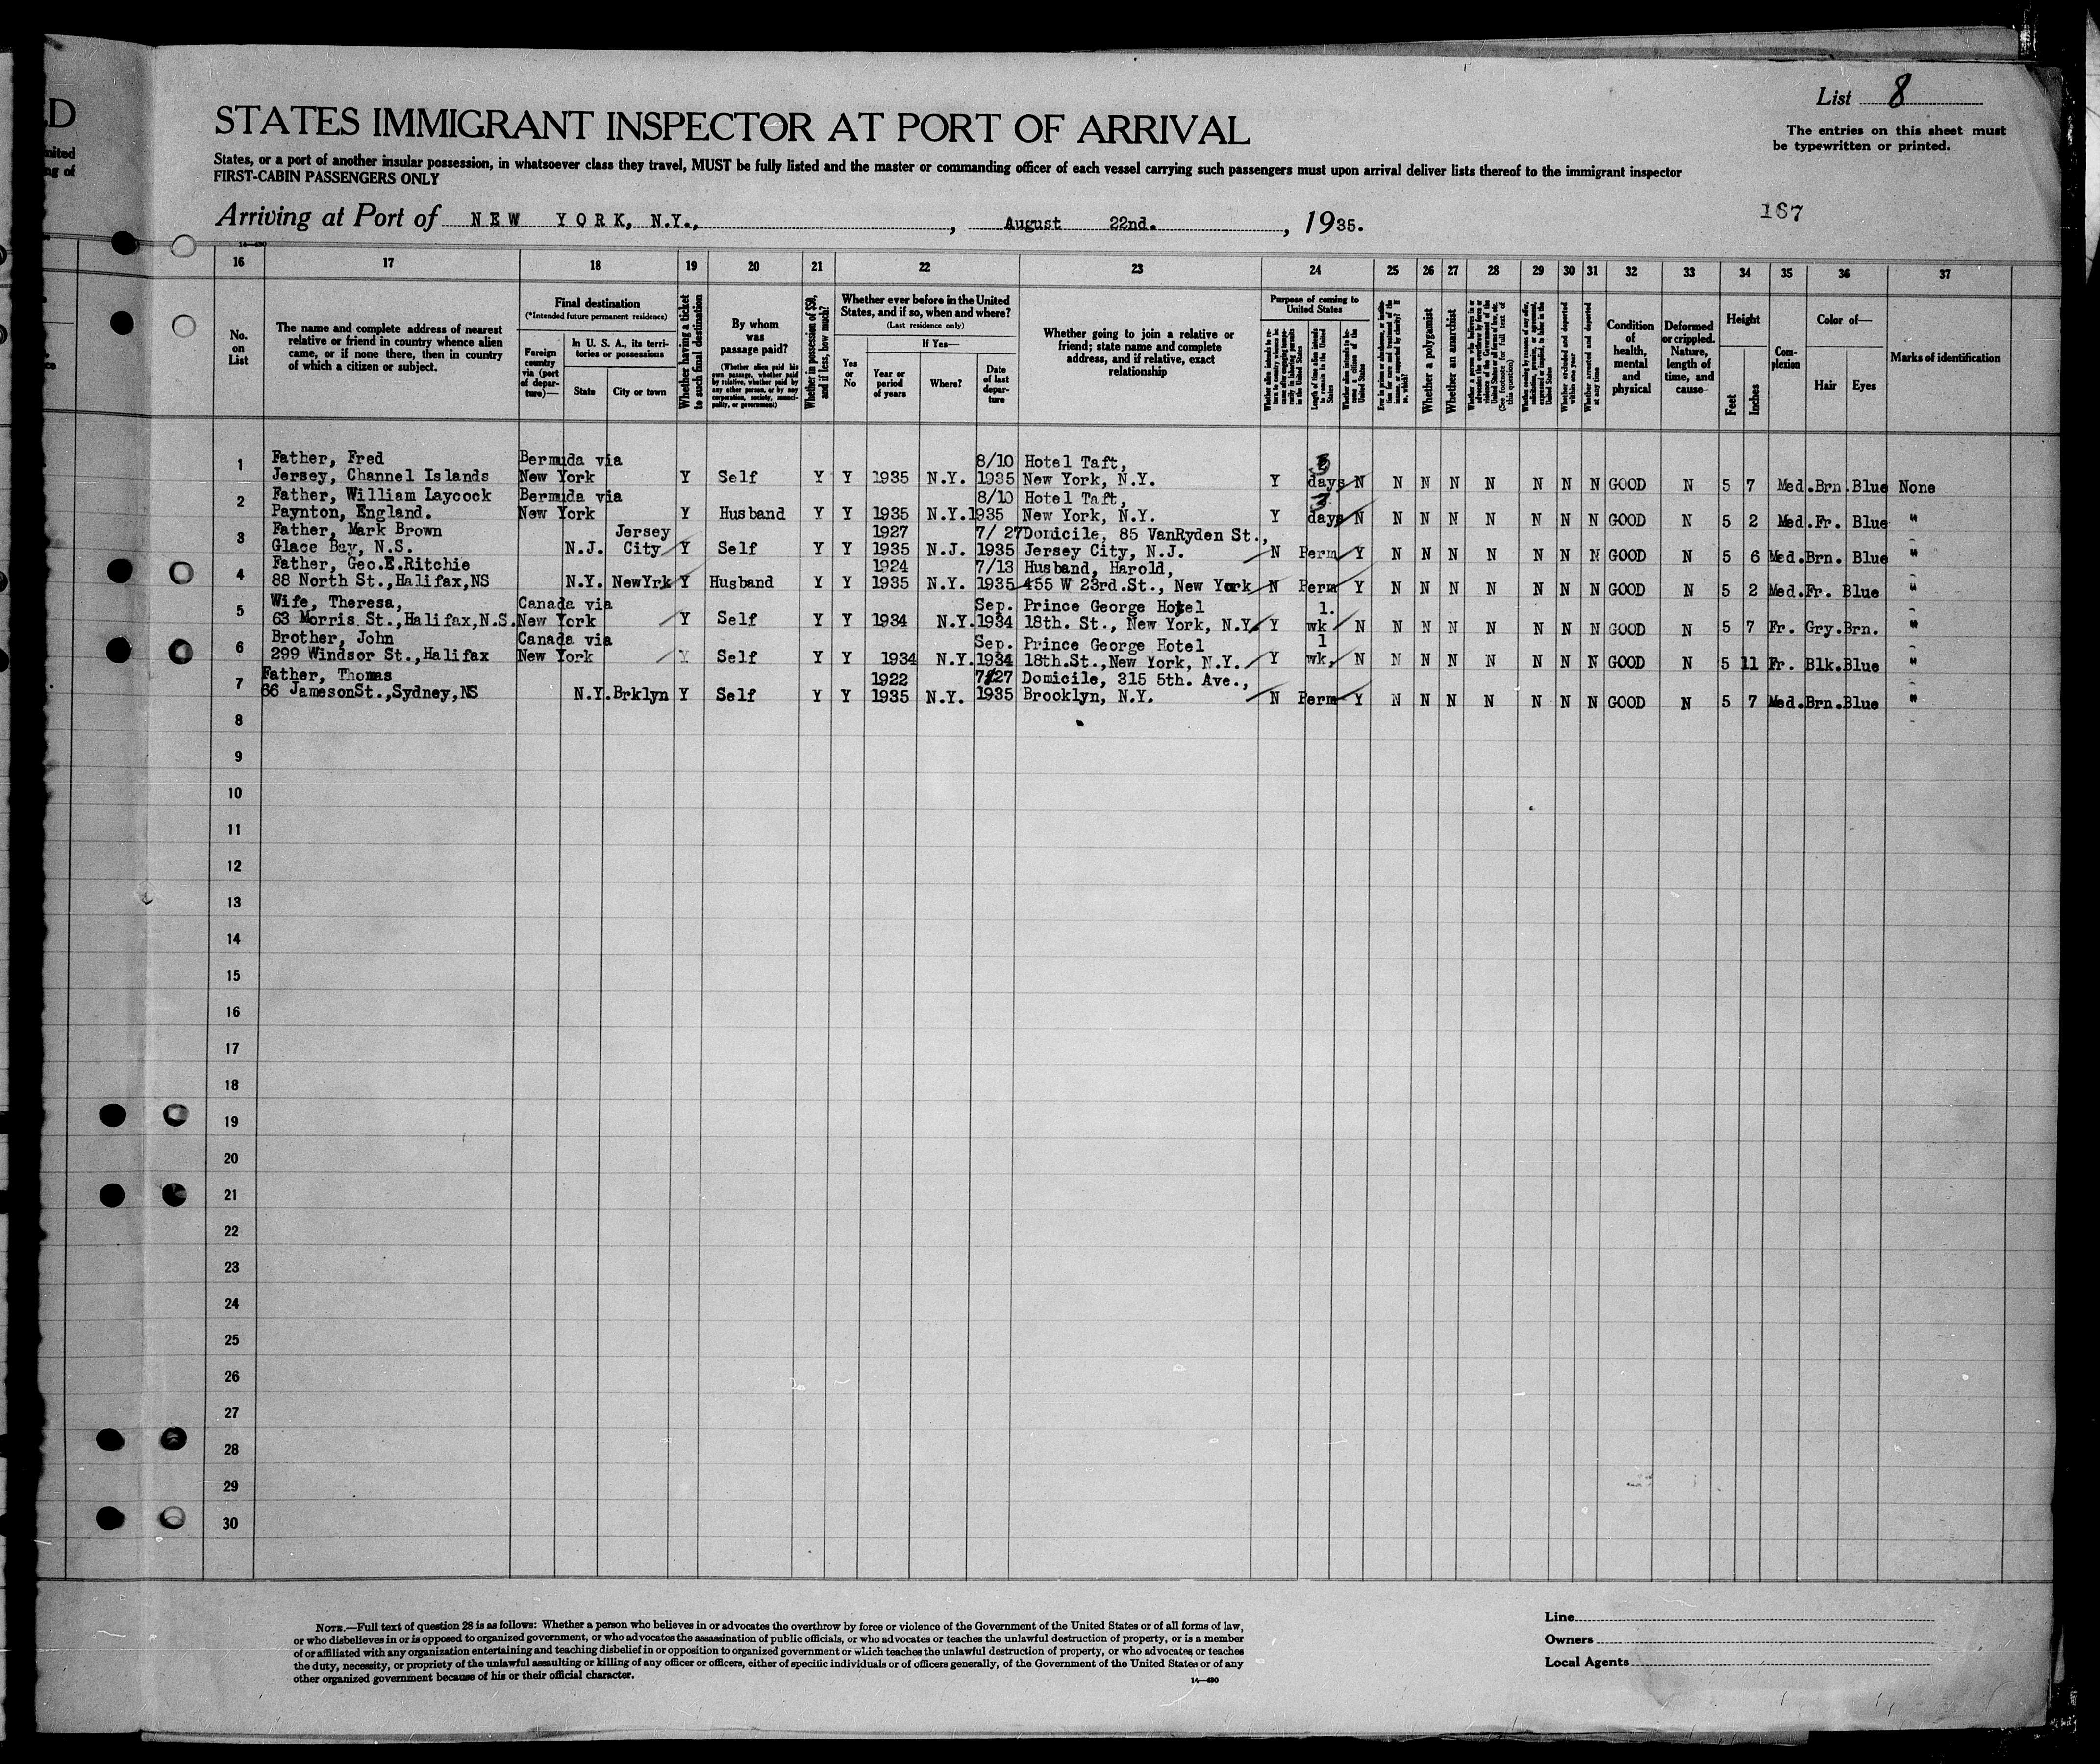 D
nited
ng of
List 8
STATES IMMIGRANT INSPECTOR AT PORT OF ARRIVAL
The entries on this sheet must
be typewritten or printed.
States, or a port of another insular possession, in whatsoever class they travel, MUST be fully listed and the master or commanding officer of each vessel carrying such passengers must upon arrival deliver lists thereof to the immigrant inspector
FIRST-CABIN PASSENGERS ONLY
167
Arriving at Port of NEW YORK, N.Y., , August 22nd. , 1935.
14—430
16 17 18 19 20 21 22 23 24 25 26 27 28 29 30 31 32 33 34 35 36 37
No. on List
The name and complete address of nearest relative or friend in country whence alien came, or if none there, then in country of which a citizen or subject.
Final destination
(*Intended future permanent residence)
Foreign country via (port of departure)—
In U. S. A., its territories or possessions
State City or town
Whether having a ticket to such final destination
By whom was passage paid?
(Whether alien paid his own passage, whether paid by relative, whether paid by any other person, or by any corporation, society, municipality, or government)
Whether in possession of $50, and if less, how much?
Whether ever before in the United States, and if so, when and where?
(Last residence only)
Yes or No
If Yes—
Year or period of years
Where?
Date of last departure
Whether going to join a relative or friend; state name and complete address, and if relative, exact relationship
Purpose of coming to United States
Length of time alien intends to remain in the United States
Whether alien intends to become a citizen of the United States
Whether a polygamist
Whether an anarchist
(See footnote for full text of this question)
Whether arrested and deported at any time
Condition of health, mental and physical
Deformed or crippled. Nature, length of time, and cause
Height
Feet Inches
Complexion
Color of—
Hair Eyes
Marks of identification
1 Father, Fred Bermuda via 8/10 Hotel Taft, 3
Jersey, Channel Islands New York Y Self Y Y 1935 N.Y. 1935 New York, N.Y. Y days N N N N N N N N GOOD N 5 7 Med. Brn. Blue None
2 Father, William Laycock Bermuda via 8/10 Hotel Taft, 3
Paynton, England. New York Y Husband Y Y 1935 N.Y. 1935 New York, N.Y. Y days N N N N N N N N GOOD N 5 2 Med. Fr. Blue "
3 Father, Mark Brown Jersey 1927 7/ 27 Domicile, 85 VanRyden St.,
Glace Bay, N.S. N.J. City Y Self Y Y 1935 N.J. 1935 Jersey City, N.J. N Perm Y N N N N N N N GOOD N 5 6 Med. Brn. Blue "
4 Father, Geo.E.Ritchie 1924 7/13 Husband, Harold,
88 North St.,Halifax,NS N.Y. NewYrk Y Husband Y Y 1935 N.Y. 1935 455 W 23rd.St., New York N Perm Y N N N N N N N GOOD N 5 2 Med. Fr. Blue "
5 Wife, Theresa, Canada via Sep. Prince George Hotel 1.
63 Morris St.,Halifax,N.S. New York Y Self Y Y 1934 N.Y. 1934 18th. St., New York, N.Y. Y wk N N N N N N N N GOOD N 5 7 Fr. Gry. Brn. "
6 Brother, John Canada via Sep. Prince George Hotel 1
299 Windsor St.,Halifax New York Y Self Y Y 1934 N.Y. 1934 18th.St.,New York, N.Y. Y wk. N N N N N N N N GOOD N 5 11 Fr. Blk. Blue "
7 Father, Thomas 1922 7/27 Domicile, 315 5th. Ave.,
66 JamesonSt.,Sydney,NS N.Y. Brklyn Y Self Y Y 1935 N.Y. 1935 Brooklyn, N.Y. N Perm Y N N N N N N N GOOD N 5 7 Med. Brn. Blue "
8
9
10
11
12
13
14
15
16
17
18
19
20
21
22
23
24
25
26
27
28
29
30
NOTE.—Full text of question 28 is as follows: Whether a person who believes in or advocates the overthrow by force or violence of the Government of the United States or of all forms of law,
or who disbelieves in or is opposed to organized government, or who advocates the assassination of public officials, or who advocates or teaches the unlawful destruction of property, or is a member
of or affiliated with any organization entertaining and teaching disbelief in or opposition to organized government or which teaches the unlawful destruction of property, or who advocates or teaches
the duty, necessity, or propriety of the unlawful assaulting or killing of any officer or officers, either of specific individuals or of officers generally, of the Government of the United States or of any
other organized government because of his or their official character.
14—430
Line
Owners
Local Agents